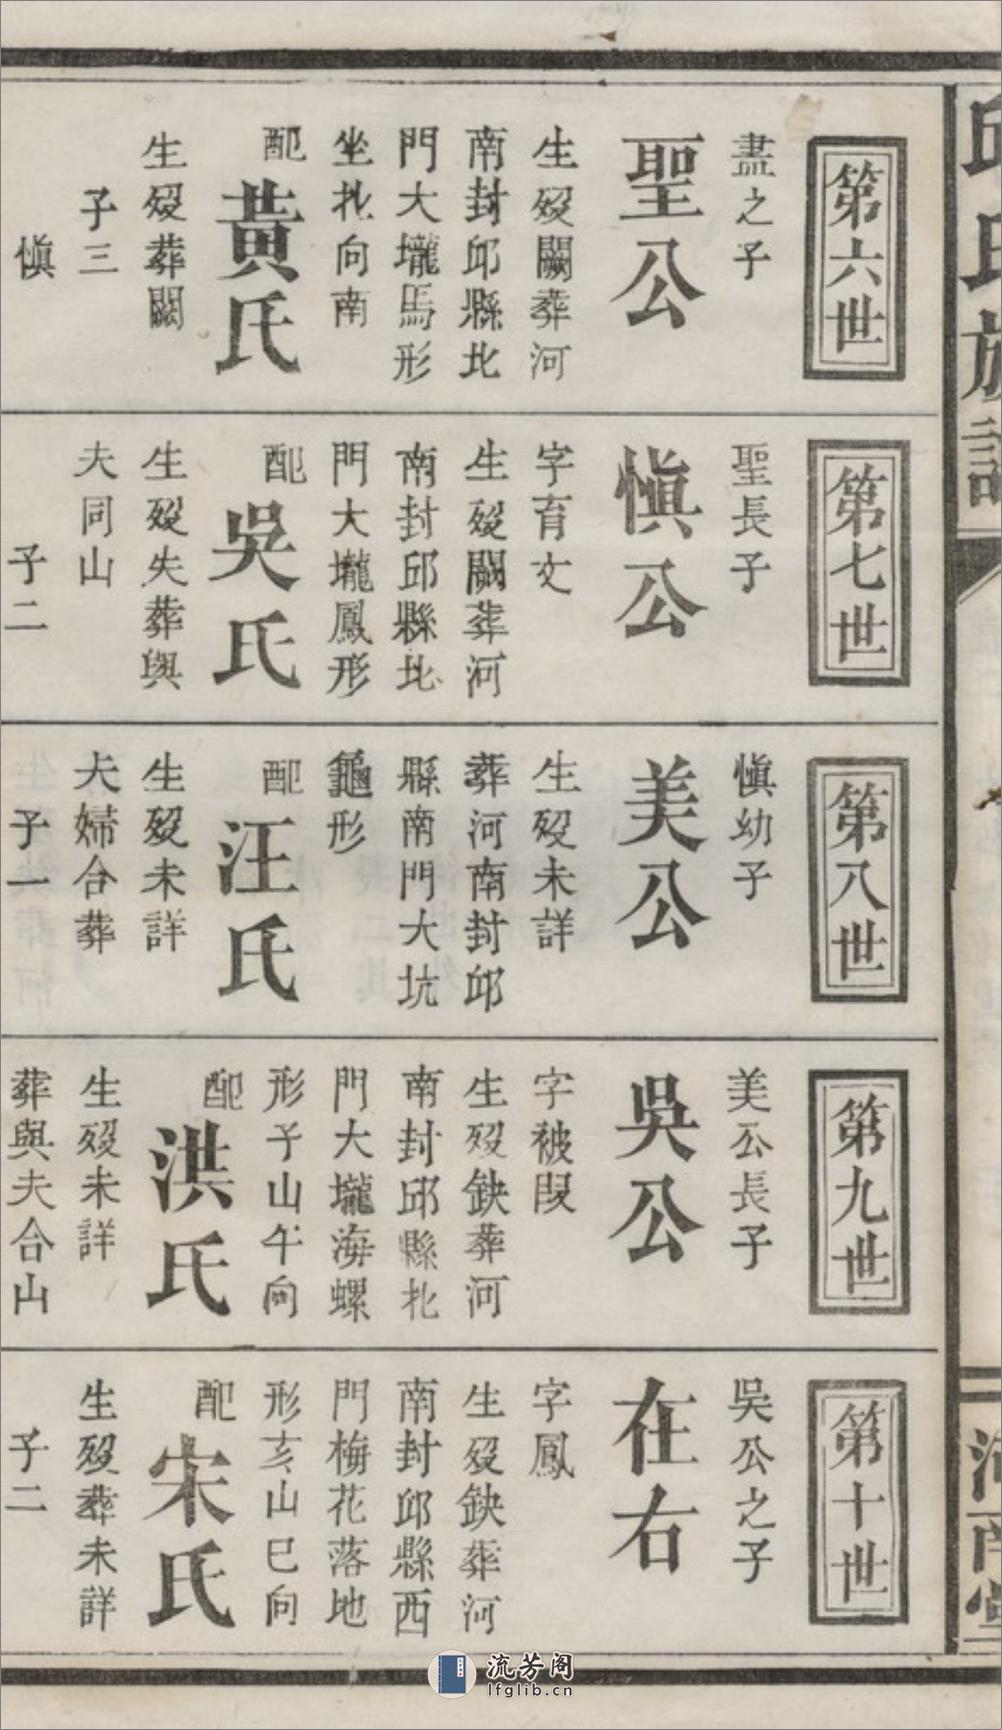 邱氏族譜
第六世
盡之子
聖公
生歿闕葬河
南封邱縣北
門大壠馬形
坐北向南
配
黃氏
生歿葬闕
子三
愼
第七世
聖長子
愼公
字育文
生歿闕葬河
南封邱縣北
門大壠鳳形
配
吳氏
生歿失葬與
夫同山
子二
第八世
愼幼子
美公
生歿未詳
葬河南封邱
縣南門大坑
龜形
配
汪氏
生歿未詳
夫婦合葬
子一
第九世
美公長子
吳公
字被叚
生歿缺葬河
南封邱縣北
門大壠海螺
形子山午向
配
洪氏
生歿未詳
葬與夫合山
第十世
吳公之子
在右
字鳳
生歿缺葬河
南封邱縣西
門梅花落地
形亥山巳向
配
宋氏
生歿葬未詳
子二
二
河南堂
流芳阁
lfglib.cn